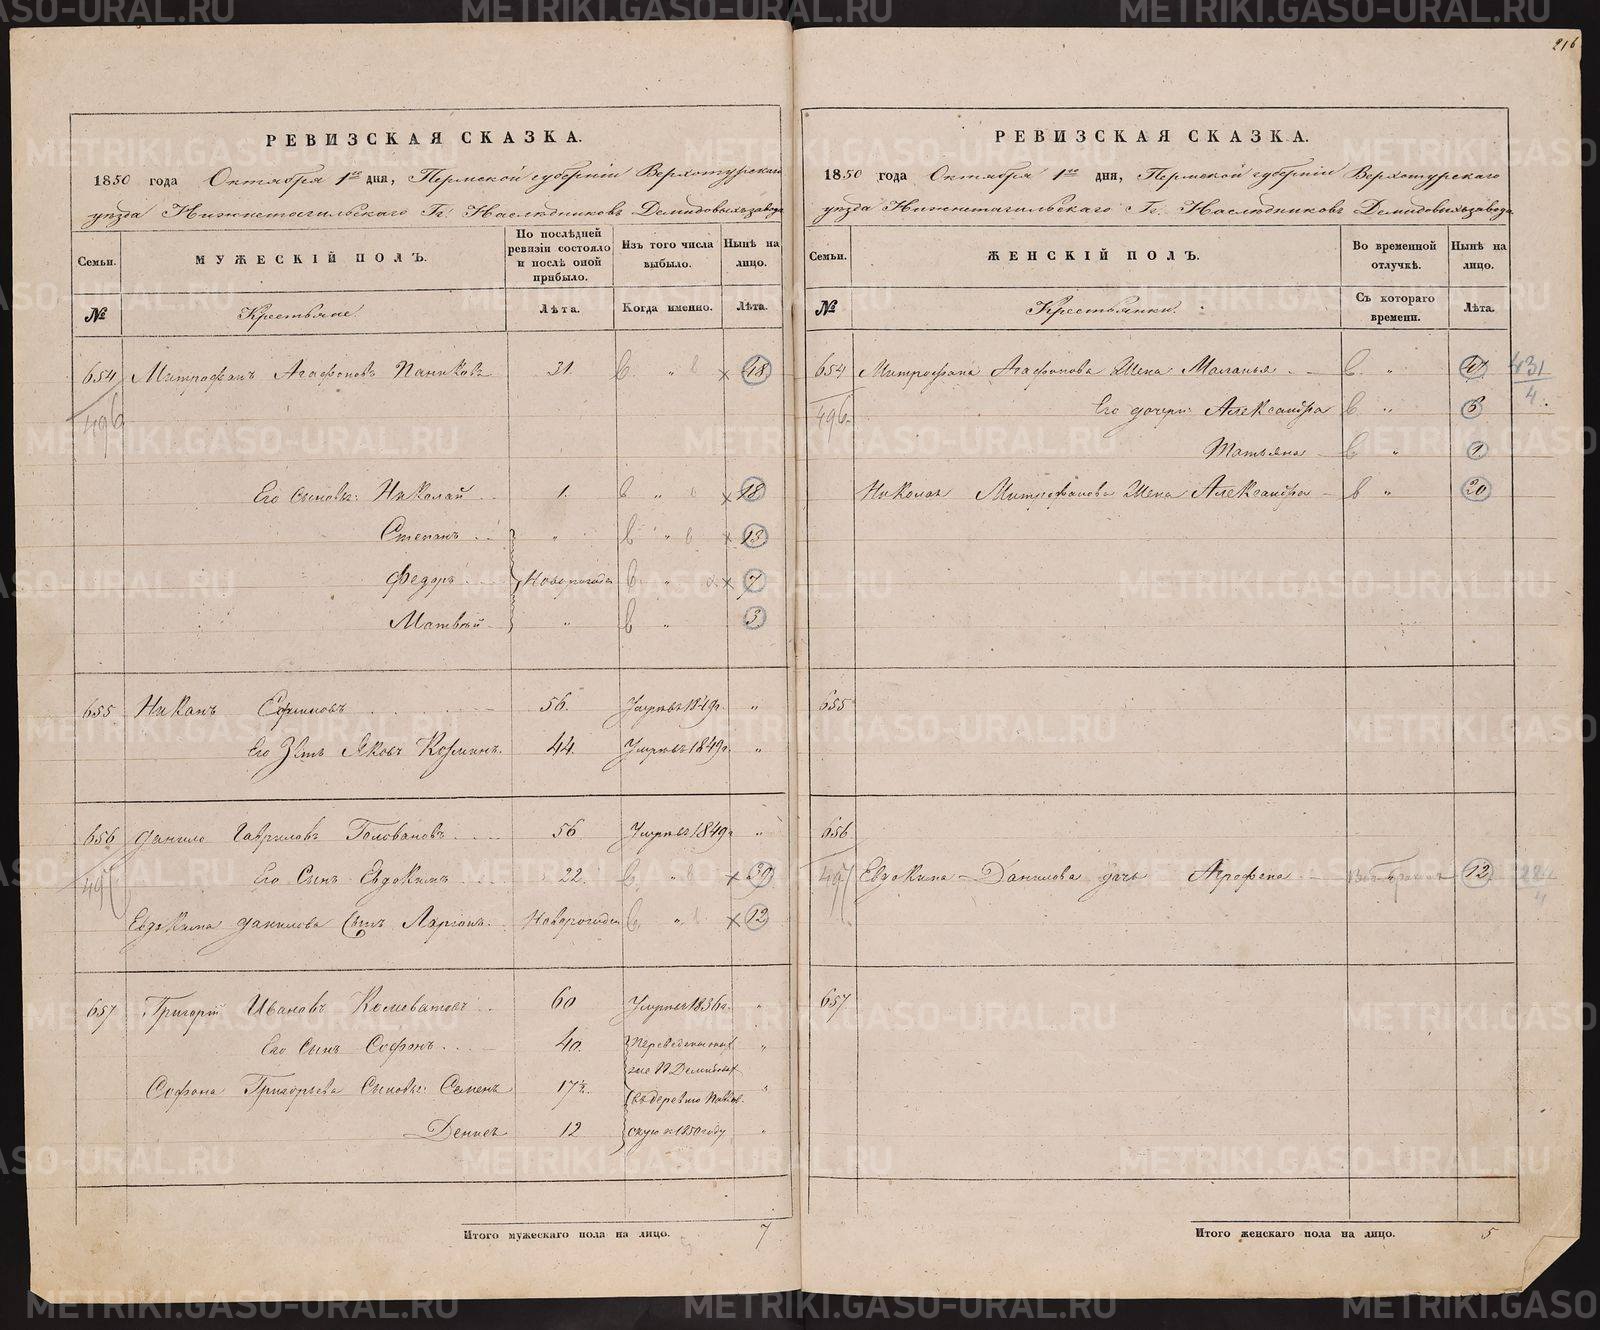 216
РЕВИЗСКАЯ СКАЗКА.
1850 года Октября 1го дня, Пермской губернiи Верхотурскаго
уѣзда Нижнетагильскаго Гг. Наслѣдниковъ Демидовыхъ завода
Семьи. МУЖЕСКІЙ ПОЛЪ. По послѣдней ревизіи состояло и послѣ оной прибыло. Изъ того числа выбыло. Нынѣ на лицо.
№ Крестьяне. Лѣта. Когда именно. Лѣта.
654 Митрофанъ Агафоновъ Паниковъ 31. 48
496
Его сыновья: Николай 1. 18
Степанъ 13
Федоръ Новорожден 7
Матвѣй 3
655 Иканъ Ефимовъ 56. Умръ въ 1849г. "
Его Зять Яковъ 44. Умръ въ 1849г. "
656 Данило Гавриловъ Головановъ 56 Умръ въ 1849г "
497 Его Сынъ Евдокимъ 22. 39
Евдокима Данилова Сынъ Ларіонъ. Новорожден 12
657 Григорій Ивановъ Колеватовъ 60 Умръ 1836г. "
Его Сынъ Софонъ 40. Переведены "
Софона Григорьева Сыновья: Семенъ 17½. въ деревню "
Денисъ 12 скую въ 1850 году "
Итого мужескаго пола на лицо. 7
РЕВИЗСКАЯ СКАЗКА.
1850 года Октября 1го дня, Пермской губернiи Верхотурскаго
уѣзда Нижнетагильскаго Гг. Наслѣдниковъ Демидовыхъ завода
Семьи. ЖЕНСКІЙ ПОЛЪ. Во временной отлучкѣ. Нынѣ на лицо.
№ Крестьянки. Съ котораго времени. Лѣта.
654 Митрофана Агафонова Жена Маланья 47 431/4
496 Его дочери: Александра 6
Татьяна 1
Николая Митрофанова Жена Александра 20
655
656
497 Евдокима Данилова дочь Агрофена 12
657
Итого женскаго пола на лицо. 5
METRIKI.GASO-URAL.RU